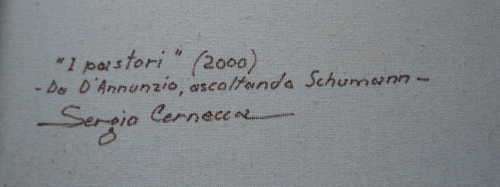 "I pastori" (2000)
- Da D'Annunzio, ascoltando Schumann -
Sergio Cernecca